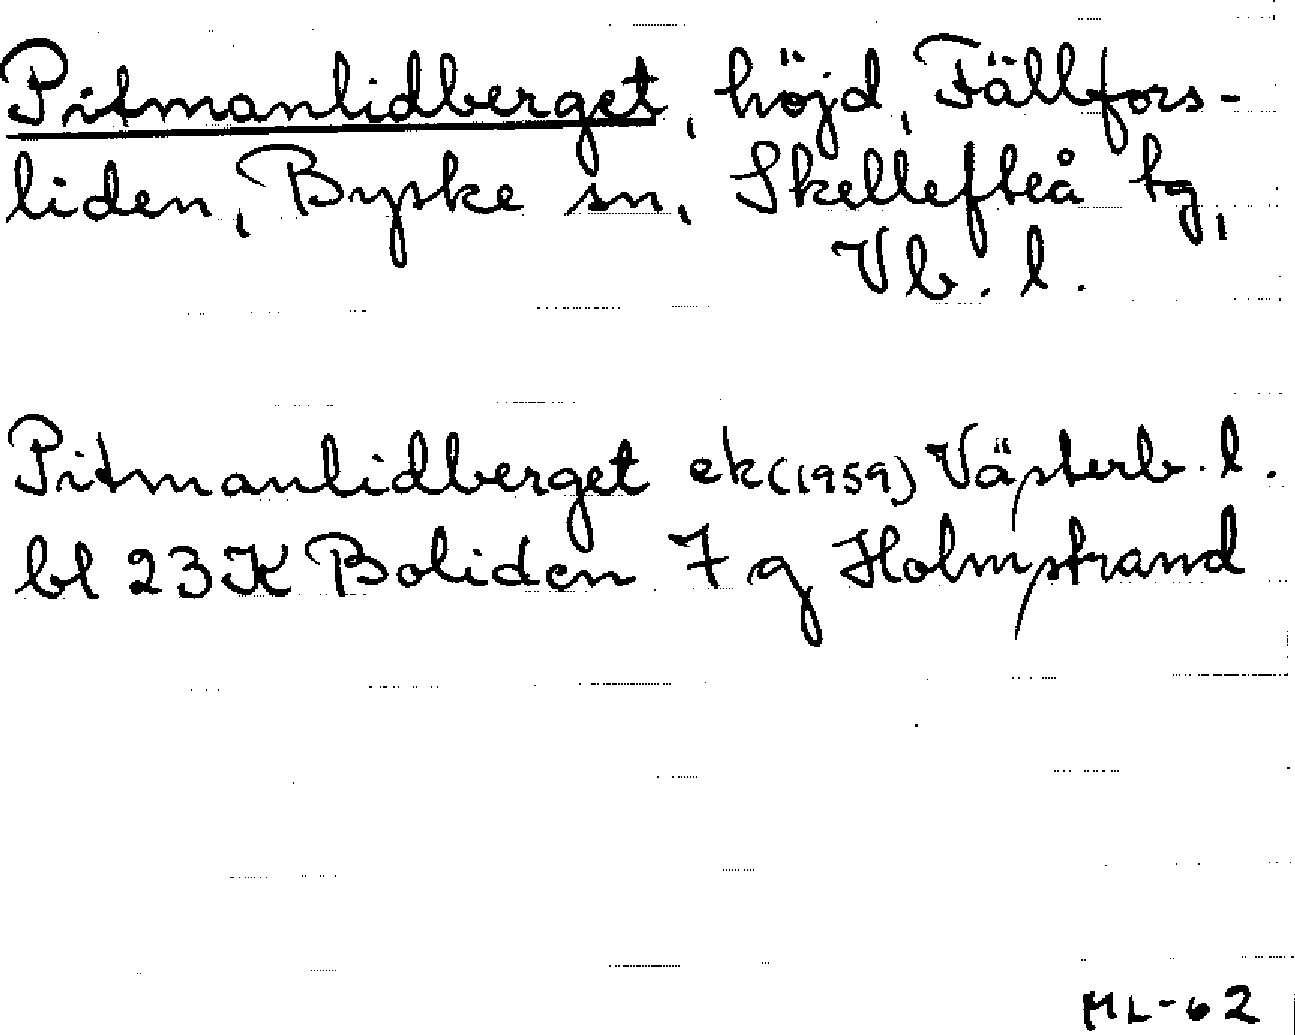 Pitmanlidberget, höjd, Fällfors-
liden, Byske sn, Skellefteå tg,
Vb. l.
Pitmanlidberget ek (1959) Västerb. l.
bl 23 K Boliden 7 g Holmstrand
ML-62